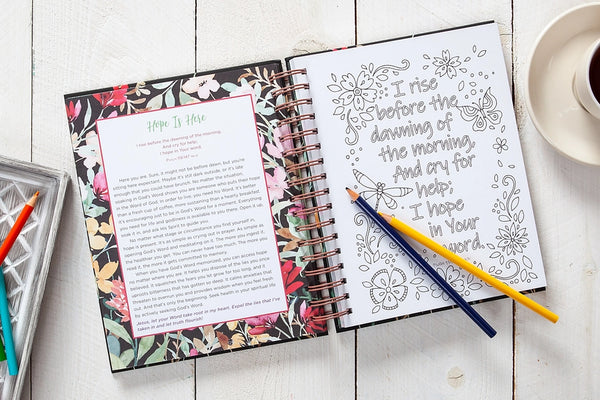 Hope Is Here
I rise before the dawning of the morning,
And cry for help;
I hope in Your word.
Here you are. Sure, it might not be before dawn but you're
sitting here expectant. Maybe it's still dark outside, or it's late
enough that you could have brunch. No matter the time,
soaking in God's Word shows you are someone who puts their hope
in the Word of God. In order to live, you need his Word. It's better
than a fresh cup of coffee, more sustaining than a hearty breakfast.
It's encouraging out to be in God's Word for a moment. Everything
you need for life and godliness is available to you there. Open it up,
soak it in, and ask His Spirit to guide you.
No matter what stage or circumstance you find yourself in,
hope is present. It's as simple as saying a prayer. As simple as
opening the Word and meditating on it. The more hope you ingest,
the healthier you get. You can never have too much. The more you
read it, the more it gets committed to memory.
When you have God's Word memorized, you can access hope
no matter where you are. It helps you dispose of the lies you've
believed. It squelches the fears you've gone for too long, and it
uproots bitterness that has been growing in your soul. It illuminates lies that
threaten to overrun you and provides wisdom when you feel like
all is chaos. And that's only the beginning. Seek hope in your spiritual life
by actively seeking God's Word.
Jesus, let your Word take root in my heart. Expel the lies that I've
taken in and let truth flourish!
I rise
before the
dawning of
the morning,
And cry for
help;
I hope
in Your
word.